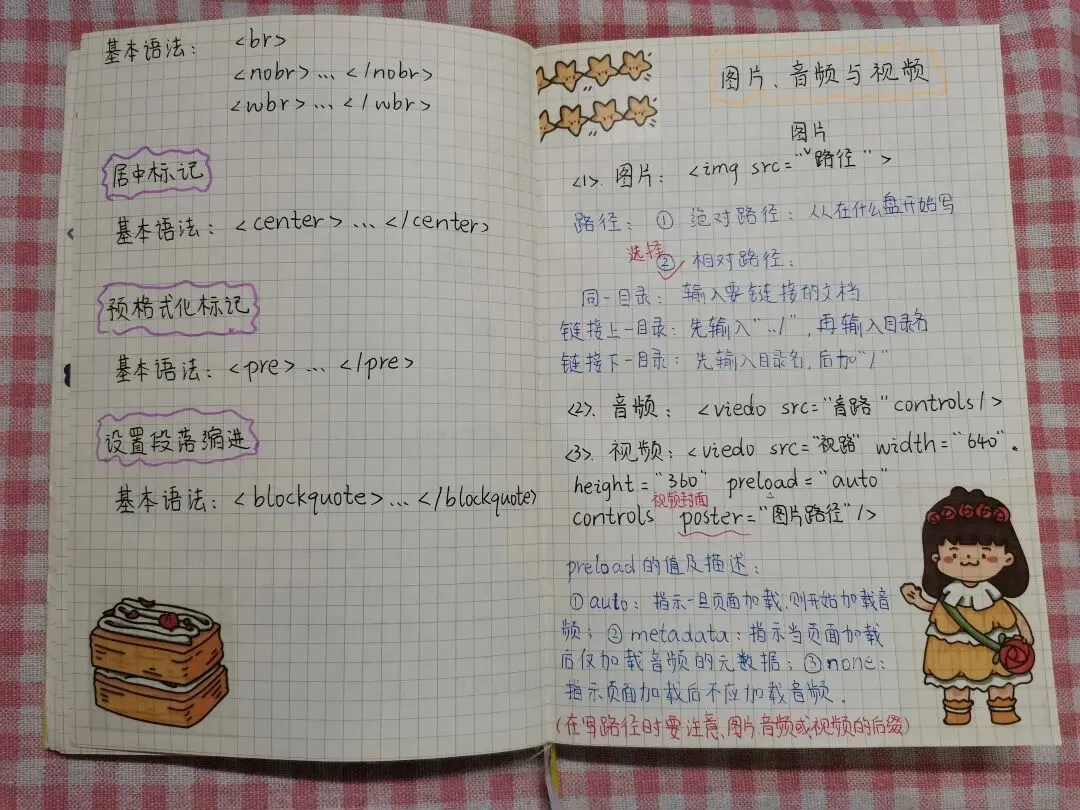 基本语法: <br>
<nobr>...</nobr>
<wbr>...</wbr>
居中标记
基本语法: <center>...</center>
预格式化标记
基本语法: <pre>...</pre>
设置段落缩进
基本语法: <blockquote>...</blockquote>
图片、音频与视频
图片
<1>. 图片: <img src="路径">
路径: ① 绝对路径: 从在什么盘开始写
选择
② 相对路径:
同一目录: 输入要链接的文档
链接上一目录: 先输入"../", 再输入目录名
链接下一目录: 先输入目录名, 后加"/"
<2>. 音频: <viedo src="音路"controls/>
<3>. 视频: <viedo src="视路" width="640".
height="360" preload="auto"
视频封面
controls poster="图片路径"/>
preload的值及描述:
①auto: 指示一旦页面加载,则开始加载音
频; ②metadata: 指示当页面加载
后仅加载音频的元数据; ③none:
指示页面加载后不应加载音频.
(在写路径时要注意,图片音频或视频的后缀)